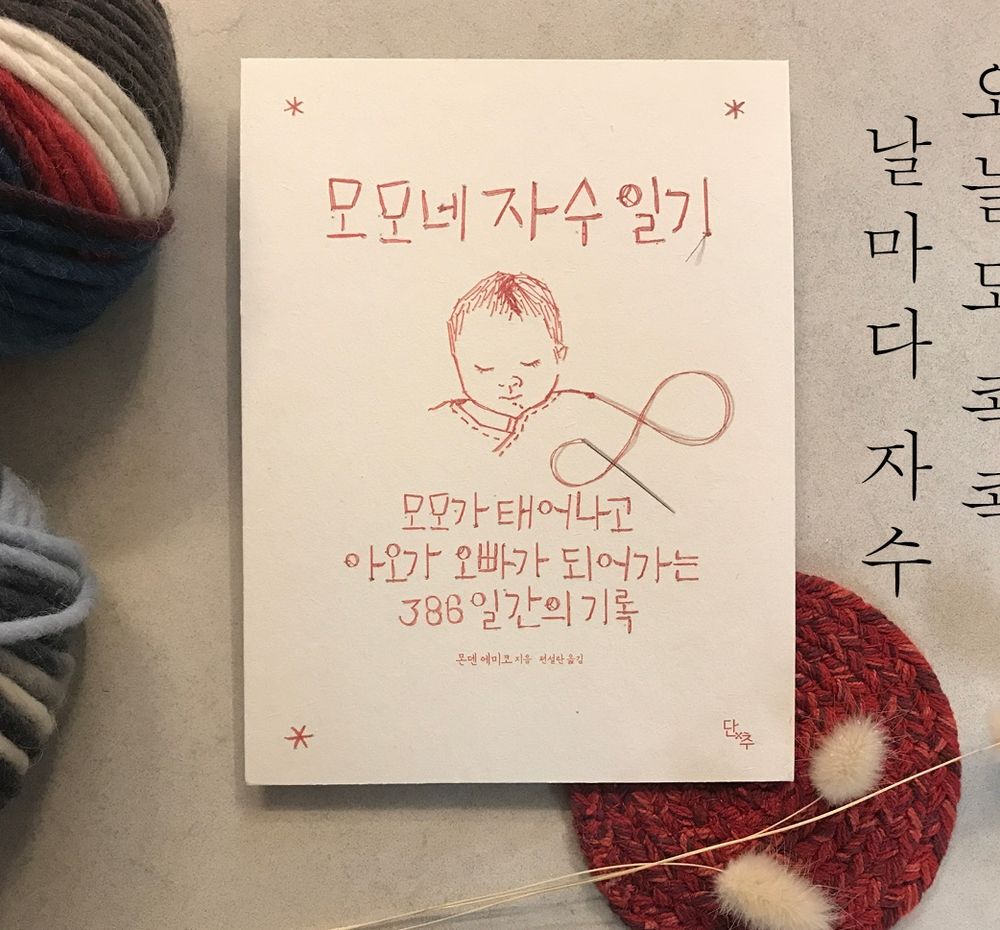 모모네 자수 일기
모모가 태어나고
아오가 오빠가 되어가는
386일간의 기록
몬덴 에미코 지음 편설란 옮김
단추
오늘도 콕콕
날마다 자수